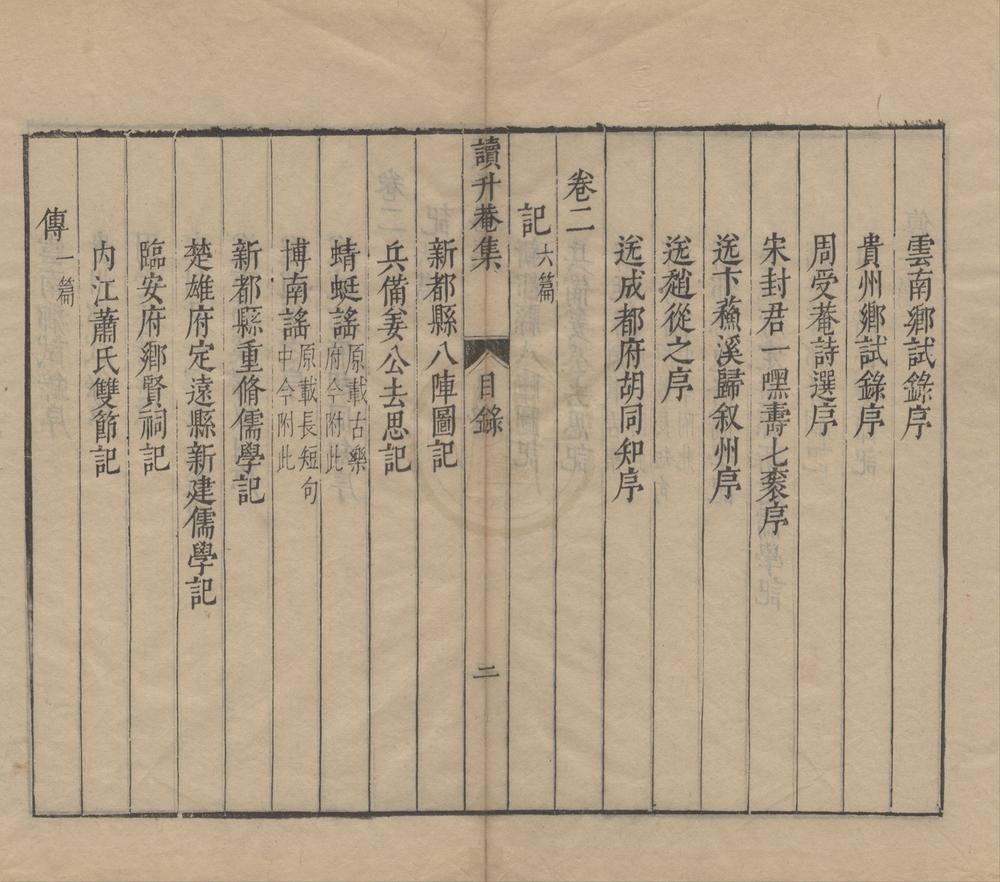 雲南鄉試錄序
貴州鄉試錄序
周受菴詩選序
宋封君一嘿壽七袠序
送卞蘓溪歸叙州序
送趙從之序
送成都府胡同知序
卷二
記六篇
讀升菴集
目錄
二
新都縣八陣圖記
兵備姜公去思記
蜻蜓謠原載古樂府今附此
博南謠原載長短句中今附此
新都縣重脩儒學記
楚雄府定遠縣新建儒學記
臨安府鄉賢祠記
傳一篇
内江蕭氏雙節記